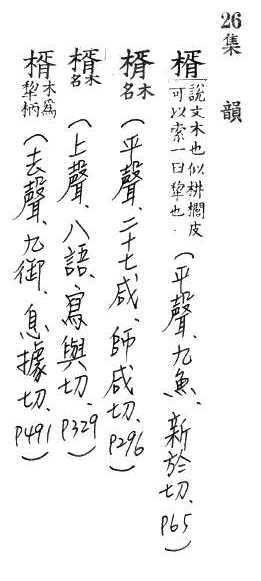 26集韻
楈說文木也似栟櫚皮可以索一曰犂也.(平聲、九魚、新於切、P65)
楈木名(平聲、二十七咸、師咸切、P296)
楈木名(上聲、八語、寫與切、P329)
楈木爲犂柄(去聲、九御、息據切、P491)